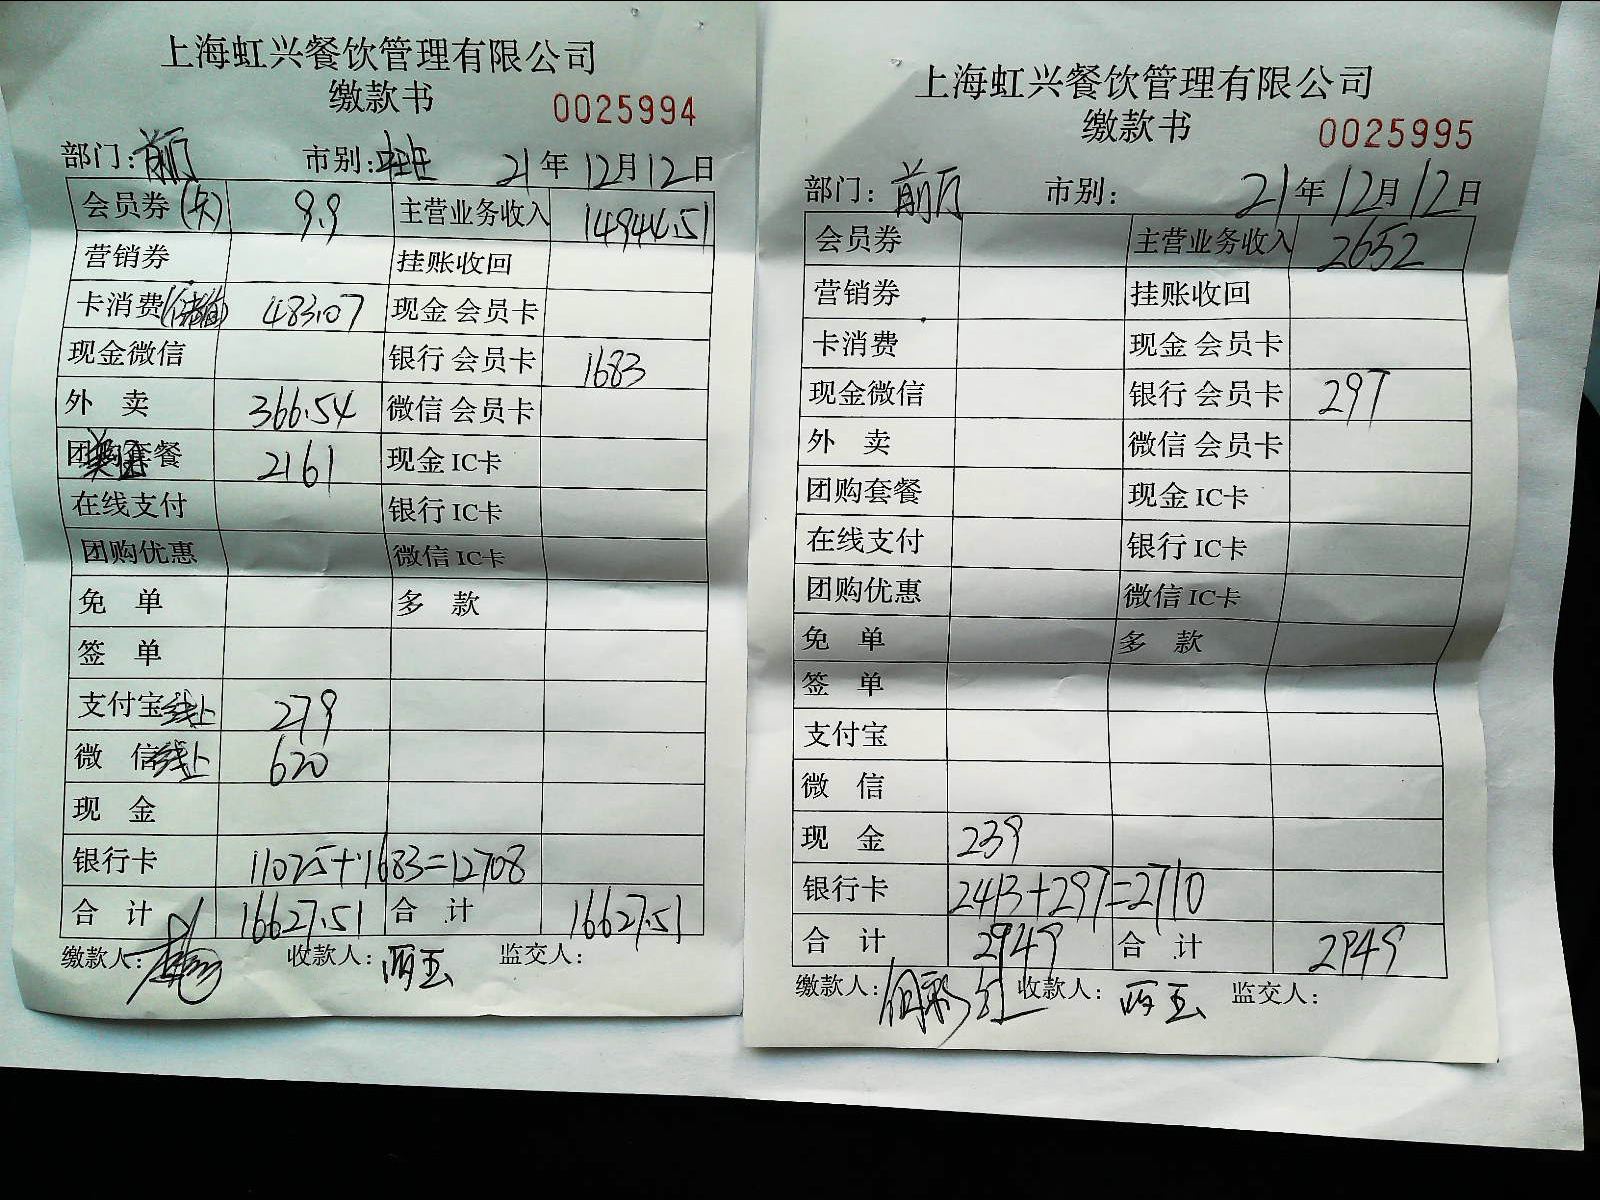 上海虹兴餐饮管理有限公司
缴款书 0025994
部门: 前厅 市别: 21年12月12日
会员券(大) 9.9 主营业务收入 14944.51
营销券 挂账收回
卡消费(储值) 483.07 现金 会员卡
现金微信 银行 会员卡 1683
外 卖 366.54 微信 会员卡
团购套餐 2161 现金 IC卡
在线支付 银行 IC卡
团购优惠 微信 IC卡
免 单 多 款
签 单
支付宝线上 279
微 信线上 620
现 金
银行卡 11025+1683=12708
合 计 16627.51 合 计 16627.51
缴款人: 收款人: 丽玉 监交人:
上海虹兴餐饮管理有限公司
缴款书 0025995
部门: 前厅 市别: 21年12月12日
会员券 主营业务收入 2652
营销券 挂账收回
卡消费 现金 会员卡
现金微信 银行 会员卡 297
外 卖 微信 会员卡
团购套餐 现金 IC卡
在线支付 银行 IC卡
团购优惠 微信 IC卡
免 单 多 款
签 单
支付宝
微 信
现 金 239
银行卡 2413+297=2710
合 计 2949 合 计 2949
缴款人: 何彩红 收款人: 丽玉 监交人: